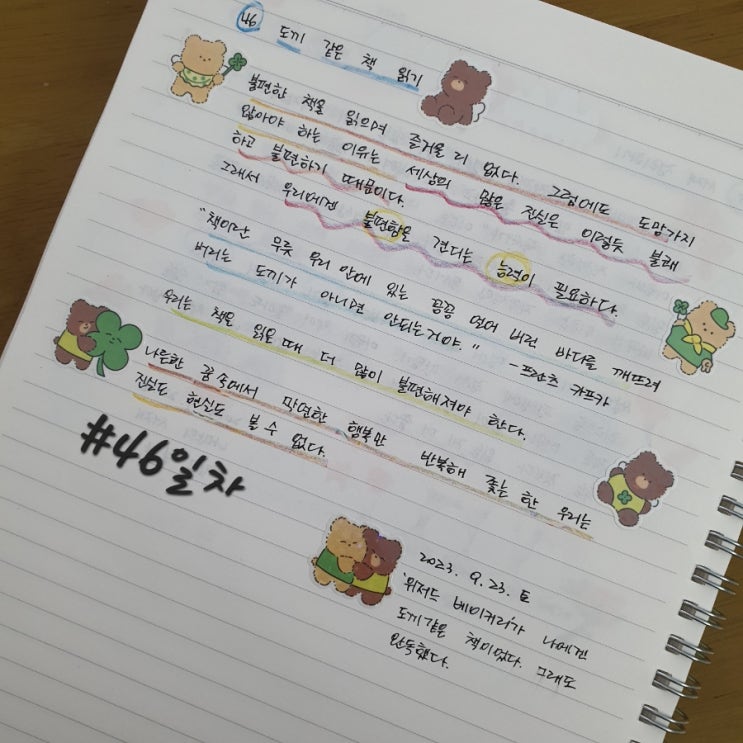 46 도끼 같은 책 읽기
불편한 책을 읽으며 즐거울 리 없다. 그럼에도 도망가지
않아야 하는 이유는 세상의 많은 진실은 이렇듯 불쾌
하고 불편하기 때문이다.
그래서 우리에겐 불편함을 견디는 능력이 필요하다.
"책이란 무릇 우리 안에 있는 꽁꽁 얼어 버린 바다를 깨뜨려
버리는 도끼가 아니면 안되는거야." -프란츠 카프카
우리는 책을 읽을 때 더 많이 불편해져야 한다.
나른한 꿈속에서 막연한 행복만 반복해 좇는 한 우리는
진실도 현실도 볼 수 없다.
#46일차
2023. 9. 23. 토
'위저드 베이커리'가 나에겐
도끼같은 책이었다. 그래도
완독했다.